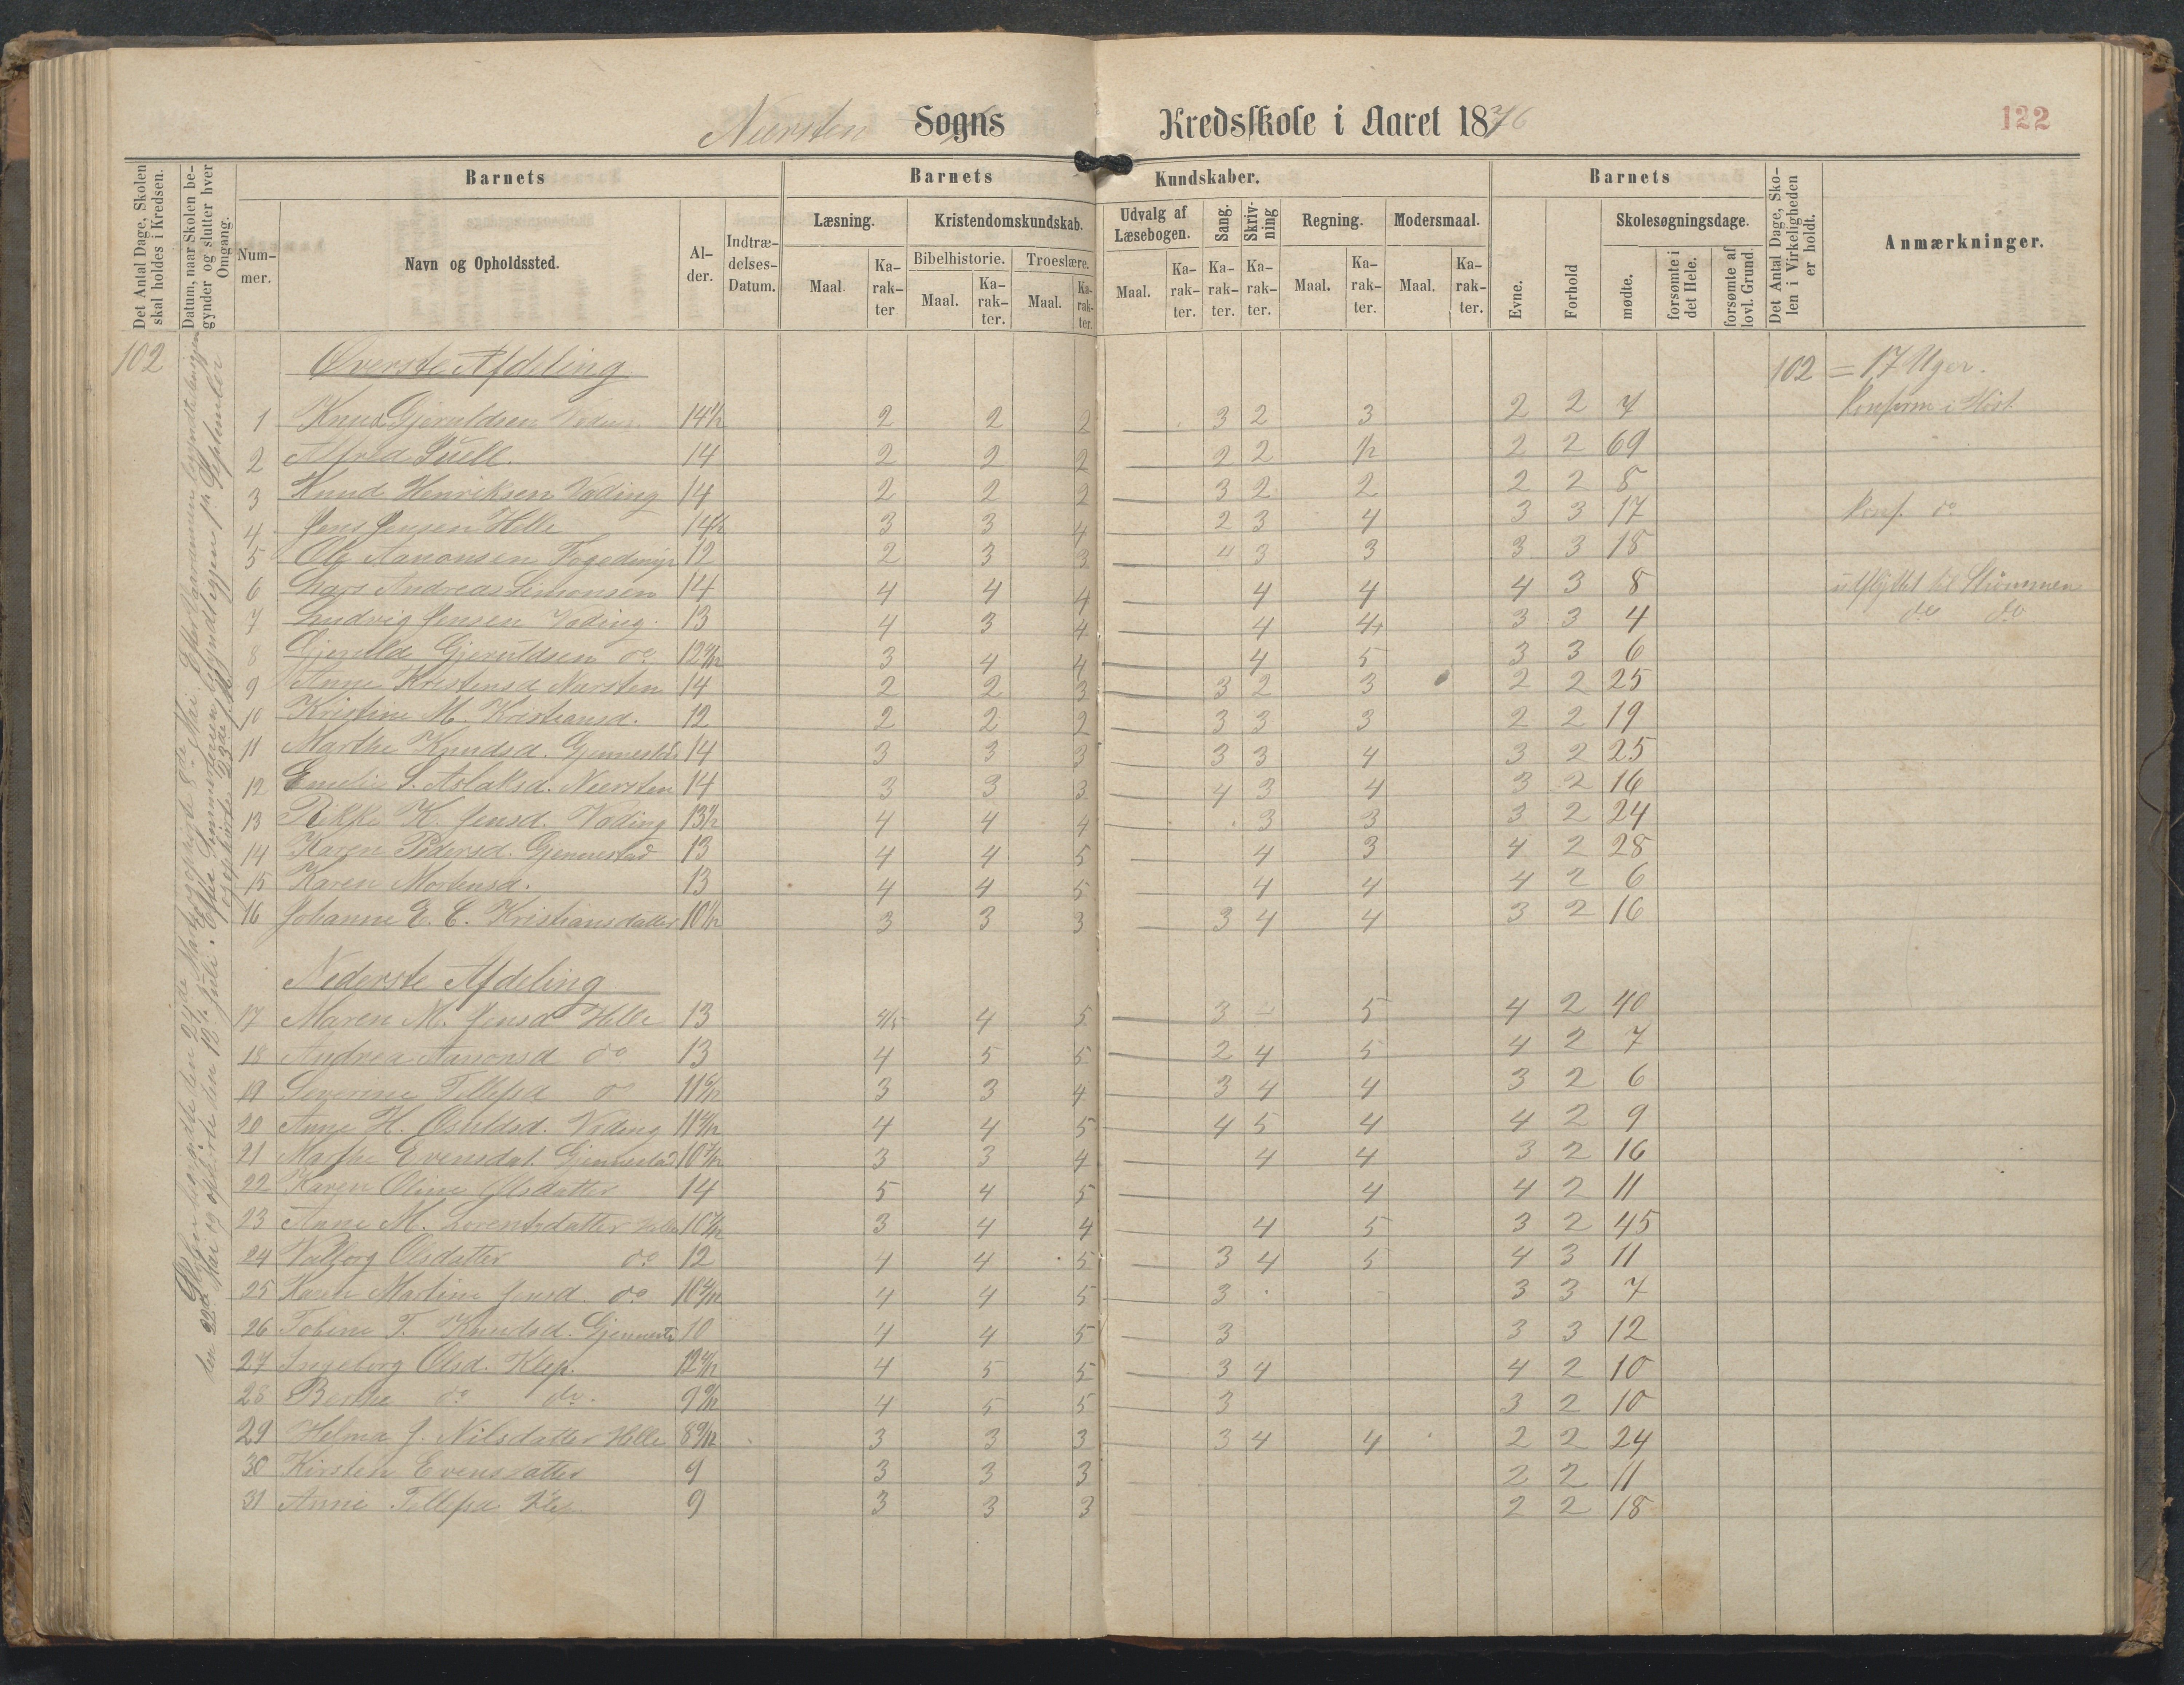 Nærsten Sogns Kredsskole i Aaret 1876
122
Det Antal Dage, Skolen skal holdes i Kredsen.
Datum, naar Skolen begynder og slutter hver Omgang.
Barnets
Barnets
Kundskaber.
Barnets
Det Antal Dage, Skolen i Virkeligheden er holdt.
Anmærkninger.
Nummer.
Navn og Opholdssted.
Alder.
Indtrædelses-Datum.
Læsning.
Kristendomskundskab.
Udvalg af Læsebogen.
Sang.
Skrivning
Regning.
Modersmaal.
Evne.
Forhold
Skolesøgningsdage.
Bibelhistorie.
Troeslære.
Maal.
Karakter
Maal.
Karakter.
Maal.
Karakter.
Maal.
Karakter.
Karakter.
Karakter.
Maal.
Karakter.
Maal.
Karakter.
mødte.
forsømte i det Hele.
forsømte af lovl. Grund
102 Øverste Afdeling 102 = 17 Uger.
1 Knud Gjeruldsen 14½ 2 2 2 3 2 3 2 2 7 Konfirm i Høst
2 Alfred Puell. 14 2 2 2 2 2 ½ 2 2 69
3 Knud Henriksen Vøding 14 2 2 2 3 2 2 2 2 8
4 Jens Jensen Helle 14½ 3 3 4 2 3 4 3 3 17 Konf. do
5 Ole Aanonsen Fogedmyr 12 2 3 3 4 3 3 3 3 18
6 Lars Andreas Simonsen 14 4 4 4 4 4 4 3 8 udflyttet til Strømmen
7 Ludvig Jensen Vøding. 13 4 3 4 4 4+ 3 3 4 do do
8 Gjeruld Gjeruldsen do 3 4 4 4 5 3 3 6
9 Anne Kristensd Nærsten 14 2 2 3 3 2 3 2 2 25
10 Kristine M. Kristiansd. 12 2 2 2 3 3 3 2 2 19
11 Marthe Knudsd. Gjennestad 14 3 3 3 3 3 4 3 2 25
12 Emelie S. Aslaksd. Nærsten 14 3 3 3 4 3 4 3 2 16
13 Rikke K. Jensd. Vøding 13½ 4 4 4 3 3 3 2 24
14 Karen Pedersd. Gjennestad 13 4 4 5 4 3 4 2 28
15 Karen Mortensd. 13 4 4 5 4 4 4 2 6
16 Johanne E. C. Kristiansdatter 10½ 3 3 3 3 4 4 3 2 16
Nederste Afdeling
17 Maren M. Jensd Helle 13 4/5 4 5 3 5 4 2 40
18 Andrea Aanonsd do 13 4 5 5 2 4 5 4 2 7
19 Severine Tellefsd do 3 3 4 3 4 4 3 2 6
20 Anne H. Osuldsd. Vøding 4 4 5 4 5 4 4 2 9
21 Marthe Evensdat. Gjennestad 3 3 4 4 4 3 2 16
22 Karen Oline Olsdatter 14 5 4 5 4 4 2 11
23 Anne M. Lorentsdatter Helle 3 4 4 4 5 3 2 45
24 Valborg Olsdatter do 12 4 4 5 3 4 5 4 3 11
25 Karen Martine Jensd. do 4 4 5 3 3 3 7
26 Tobine T. Knudsd. Gjennestad 10 4 4 5 3 3 3 12
27 Ingeborg Olsd. Klep. 4 5 5 3 4 4 2 10
28 Berthe do do. 4 5 5 3 3 2 10
29 Helma J. Nilsdatter Helle 8 9/12 3 3 3 3 4 4 2 2 24
30 Kirsten Evensdatter 9 3 3 3 2 2 11
31 Anne Tellefsd Klep 9 3 3 3 2 2 18